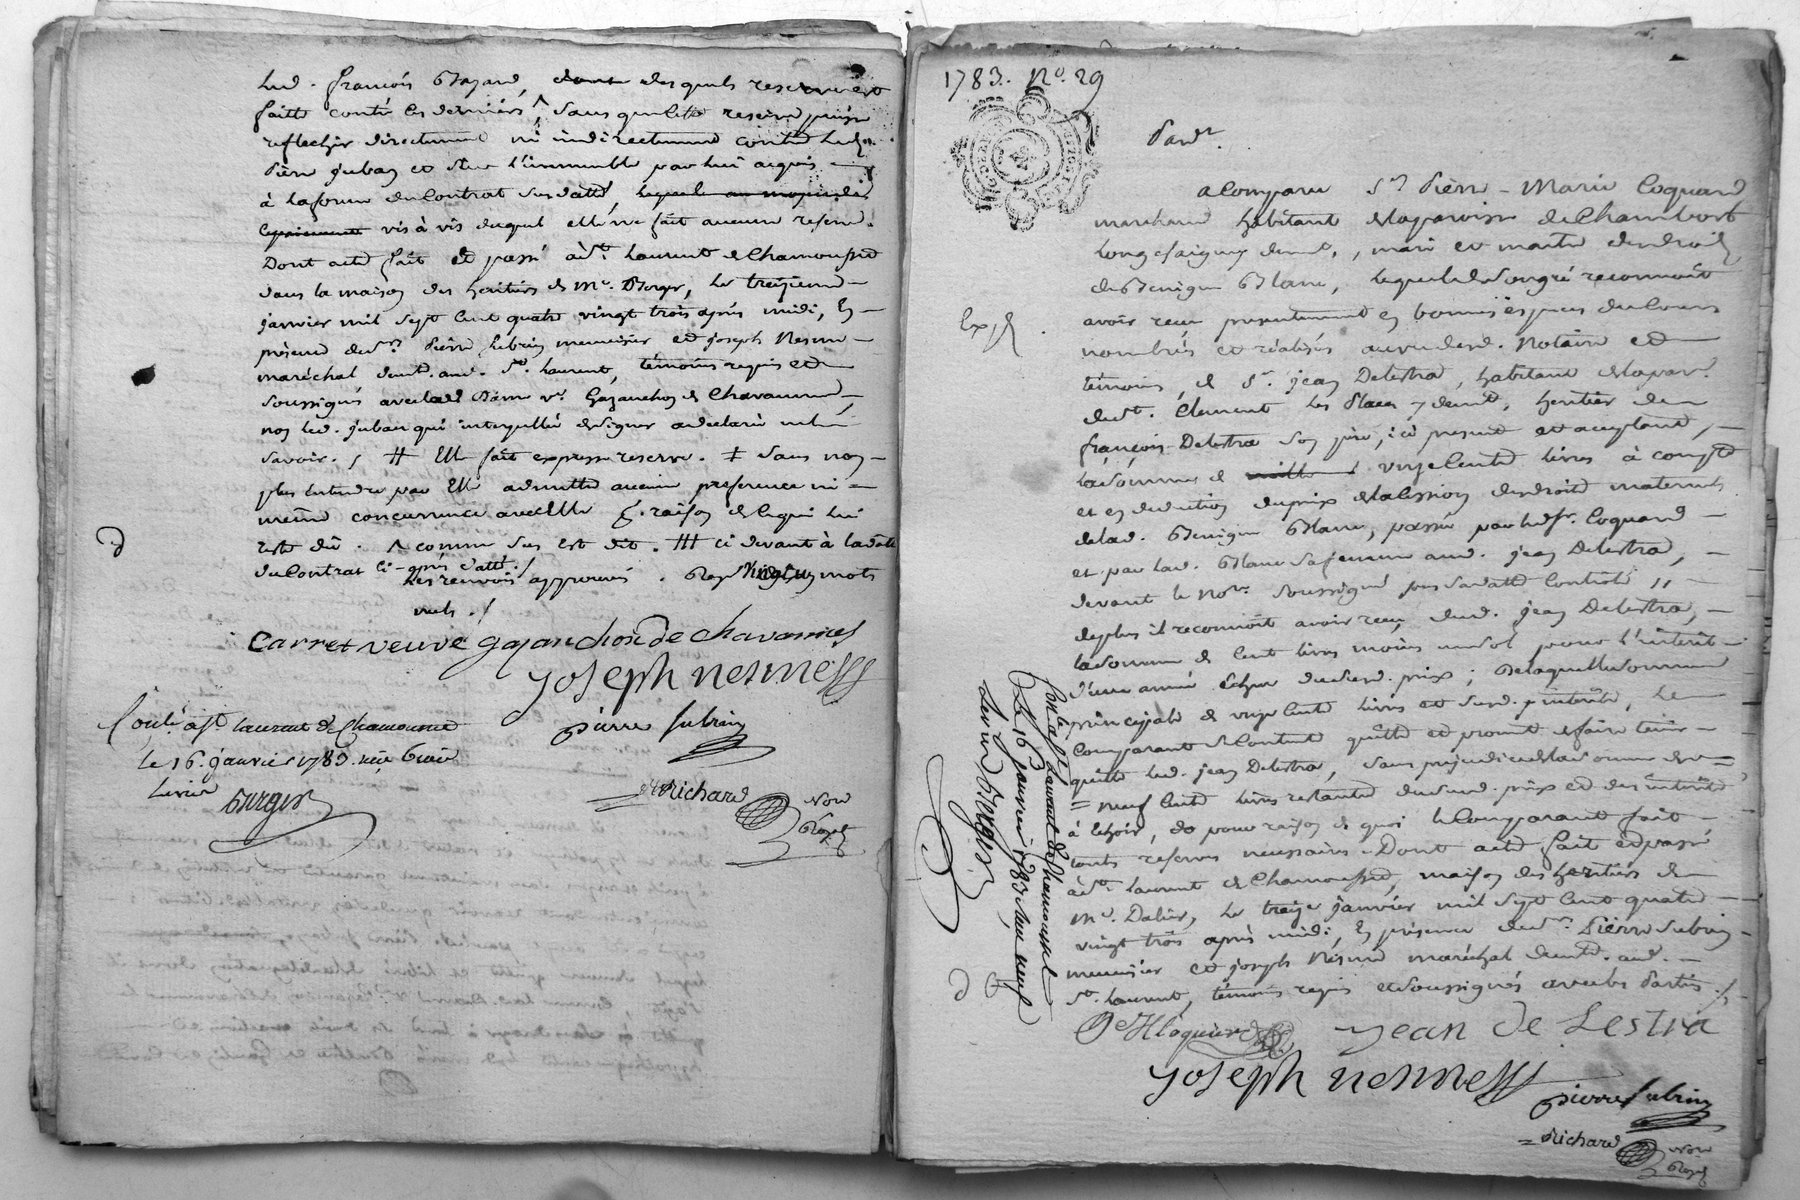 led. françois Bazard, desquels reserves est
faitte contre les derniers, ^ sans que lette reserve puisse
reflechir directement ni indirectement contre led.
Pierre juban et sur l'immeuble par lui acquis
à la forme du Contrat susdatté,
vis à vis duquel elle ne fait aucune reserve.
Dont acte fait et passé à st. Laurent de Chamousset
dans la maison des heritiers de Me. Berger, le treizieme
janvier mil sept cent quatre vingt trois après midi, En
présence de srs. Pierre subrin menuisier et joseph Nesme
maréchal dud. st. Laurent, témoins requis et
soussignés avec lad. Dame ve. Gazanchon de Chavannes,
non led. juban qui interpellé de signer a declaré ne le
savoir ./ # Elle fait expresse reserve. ‡ sans non
plus entendre par Elle admettre aucune preference ni =
meme concurrence avec Elle à raison de ce qui lui
reste dû. ^ comme sus est dit. ## ci devant à la datte
du Contrat ci-après datté ./
Les renvois approuvés. Rayé vingt un mots
nuls ./
Carret veuve gazanchon de chavannes
Joseph nesmess
Conlé. à st. laurent de Chamousset
le 16. janvier 1783. reçu
Livres
pierre subrin
Berger
Richard
Nore
Royal
1783. No. 29
Pardt.
a Comparu sr. Pierre-Marie Coquard
marchand habitant de la paroisse de Chambost
Longesaigne, mari et maitre des droits
de Benigne Blanc, lequel de son gré reconnoit
avoir reçu presentement en bonnes especes du Cours
Exp.
nombrés et réalisés au vu desd. Notaire et
témoins, de sr. jean Delestra, habitant de la par.
de st. Clement les Places, heritier de
françois Delestra son père, ici présent et acceptant,
la somme de onze Cents livres à compte
et en deduction du prix de la Cession des droits maternels
de lad. Benigne Blanc, passée par led. sr. Coquard
et par lad. Blanc sa femme aud. jean Delestra,
devant le nore. soussigné sous sa datte Controlé //
de plus il reconnoit avoir reçu dud. jean Delestra,
la somme de Cent livres moins un sol pour l'interêt
d'une année Echue dud. prix; De laquelle somme
principale de onze Cents livres et susd. interêts, le
Comparant se Contente quitte et promet de faire tenir
quitte led. jean Delestra, sans prejudice de la somme de
= neuf Cents livres restante dud. prix et des interêts
à Echoir, et pour raison de quoi le Comparant fait
touts reserves necessaires. Dont acte fait et passé
à st. Laurent de Chamousset, maison des heritiers de
Me. Dalier, le treize janvier mil sept Cent quatre
vingt trois après midi, En présence de sr. Pierre subrin
menuisier et joseph Nesme maréchal dud.
st. Laurent, témoins requis et soussignés avec les Parties ./.
Conlé. à st. Laurent de Chamousset
Le 16 janvier 1783. Reçu neuf
Livres Berger
Coquard
Jean de Lestra
Joseph nesmess
pierre subrin
Richard
Nore
Royal